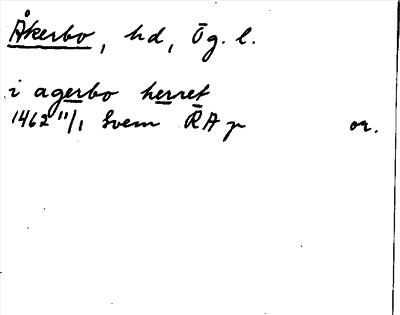 Åkerbo, hd, Ög. l.
i agerbo herret
1462 11/1 Svem RA p or.